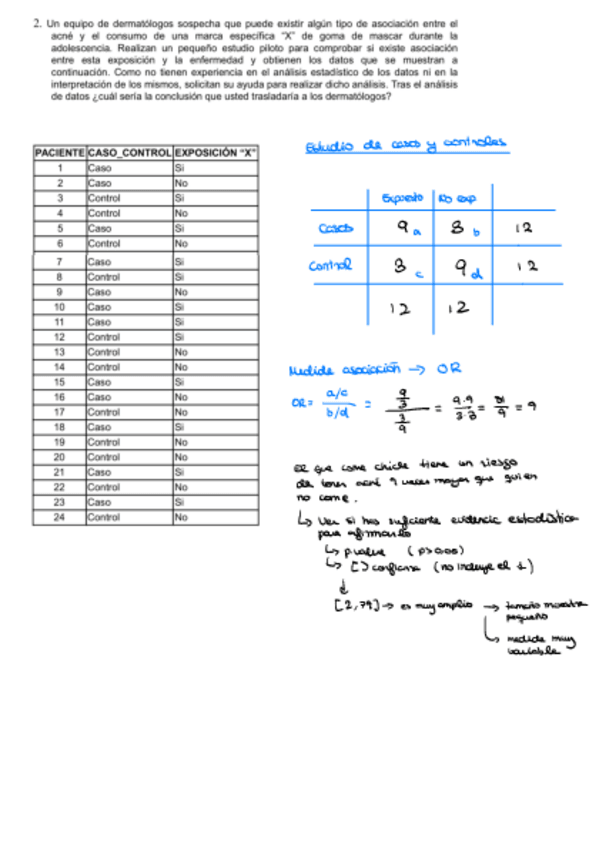 2. Un equipo de dermatólogos sospecha que puede existir algún tipo de asociación entre el
acné y el consumo de una marca específica "X" de goma de mascar durante la
adolescencia. Realizan un pequeño estudio piloto para comprobar si existe asociación
entre esta exposición y la enfermedad y obtienen los datos que se muestran a
continuación. Como no tienen experiencia en el análisis estadístico de los datos ni en la
interpretación de los mismos, solicitan su ayuda para realizar dicho análisis. Tras el análisis
de datos ¿cuál sería la conclusión que usted trasladaría a los dermatólogos?
PACIENTE CASO_CONTROL EXPOSICIÓN "X"
1 Caso Si
2 Caso No
3 Control Si
4 Control No
5 Caso Si
6 Control No
7 Caso Si
8 Control Si
9 Caso No
10 Caso Si
11 Caso Si
12 Control Si
13 Control No
14 Control No
15 Caso Si
16 Caso No
17 Control No
18 Caso Si
19 Control No
20 Control No
21 Caso Si
22 Control No
23 Caso Si
24 Control No
Estudio de casos y controles
Expuesto No exp
Casos 9 a 3 b 12
Control 3 c 9 d 12
12 12
Medida asociación → OR
OR = a/c / b/d = 9/3 / 3/9 = 9·9 / 3·3 = 81/9 = 9
El que come chicle tiene un riesgo
de tener acné 9 veces mayor que quien
no come.
↳ Ver si hay suficiente evidencia estadística
para afirmarlo
↳ p value
↳ [ ] confianza (no incluye el 1)
↓
[2,79] → es muy amplio → tamaño muestra
pequeño
↳ medida muy
variable